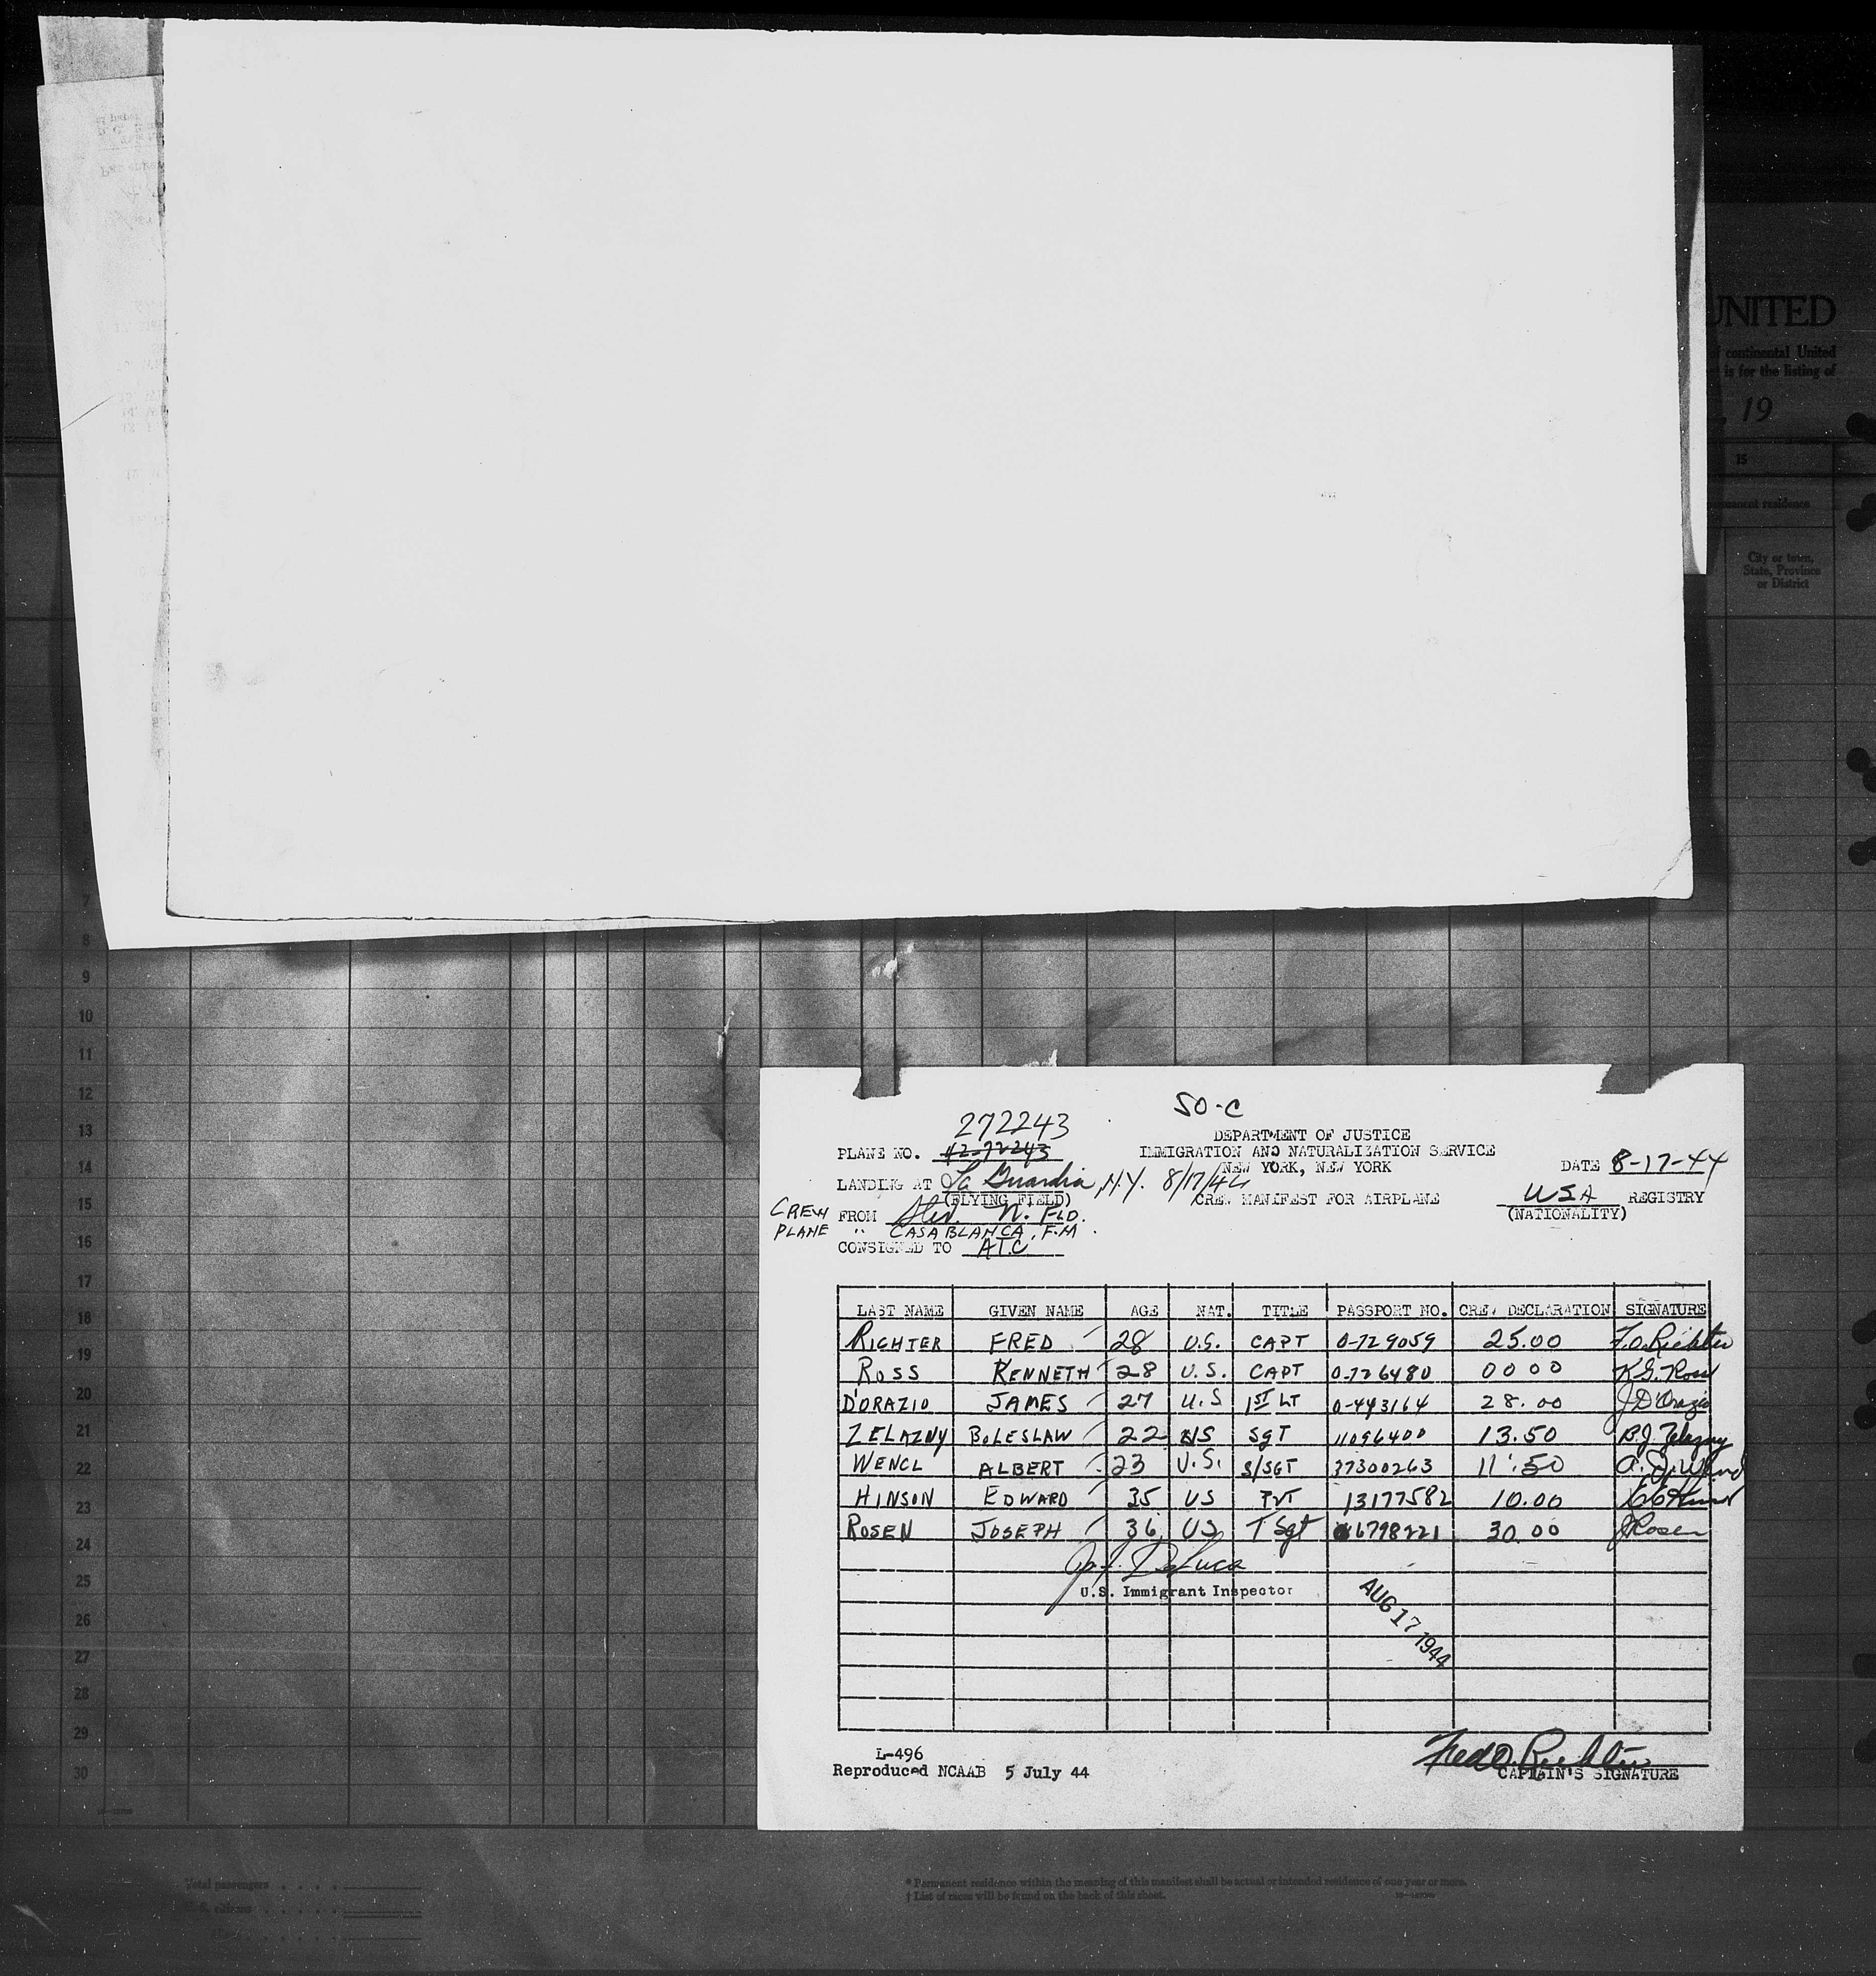 UNITED
continental United
is for the listing of
, 19
15
permanent residence
City or town,
State, Province
or District
7
8
9
10
11
12
13
14
15
16
17
18
19
20
21
22
23
24
25
26
27
28
29
30
50-C
272243
DEPARTMENT OF JUSTICE
PLANE NO. 42-72243
IMMIGRATION AND NATURALIZATION SERVICE
NEW YORK, NEW YORK
DATE 8-17-44
LANDING AT La Guardia, N.Y. 8/17/44
(FLYING FIELD)
CREW MANIFEST FOR AIRPLANE
USA REGISTRY
(NATIONALITY)
CREW FROM N. FLD.
PLANE " CASABLANCA, F.M.
CONSIGNED TO ATC
LAST NAME GIVEN NAME AGE NAT. TITLE PASSPORT NO. CREW DECLARATION SIGNATURE
RICHTER FRED 28 U.S. CAPT 0-729059 25.00 F.O. Richter
ROSS KENNETH 28 U.S. CAPT 0-726480 00 00 K.G. Ross
D'ORAZIO JAMES 27 U.S 1ST LT 0-443164 28.00 J D'Orazio
ZELAZNY BOLESLAW 22 US SgT 11096400 13.50 B.J. Zelazny
WENCL ALBERT 23 U.S. S/SGT 37300263 11.50 A. J. Wencl
HINSON EDWARD 35 US PVT 13177582 10.00
ROSEN JOSEPH 36 US T Sgt 6798221 30.00 J Rosen
DeLuca
U.S. Immigrant Inspector
AUG 17 1944
L-496
Reproduced NCAAB 5 July 44
Fred O. Richter
CAPTAIN'S SIGNATURE
Total passengers
U.S. citizens
* Permanent residence within the meaning of this manifest shall be actual or intended residence of one year or more.
† List of races will be found on the back of this sheet.